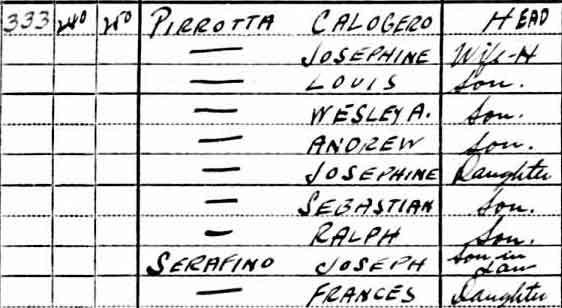 333 240 250 PIRROTTA CALOGERO HEAD
— JOSEPHINE Wife-H
— LOUIS Son.
— WESLEY A. Son.
— ANDREW Son.
— JOSEPHINE Daughter
— SEBASTIAN Son.
— RALPH Son.
SERAFINO JOSEPH Son in Law
— FRANCES Daughter